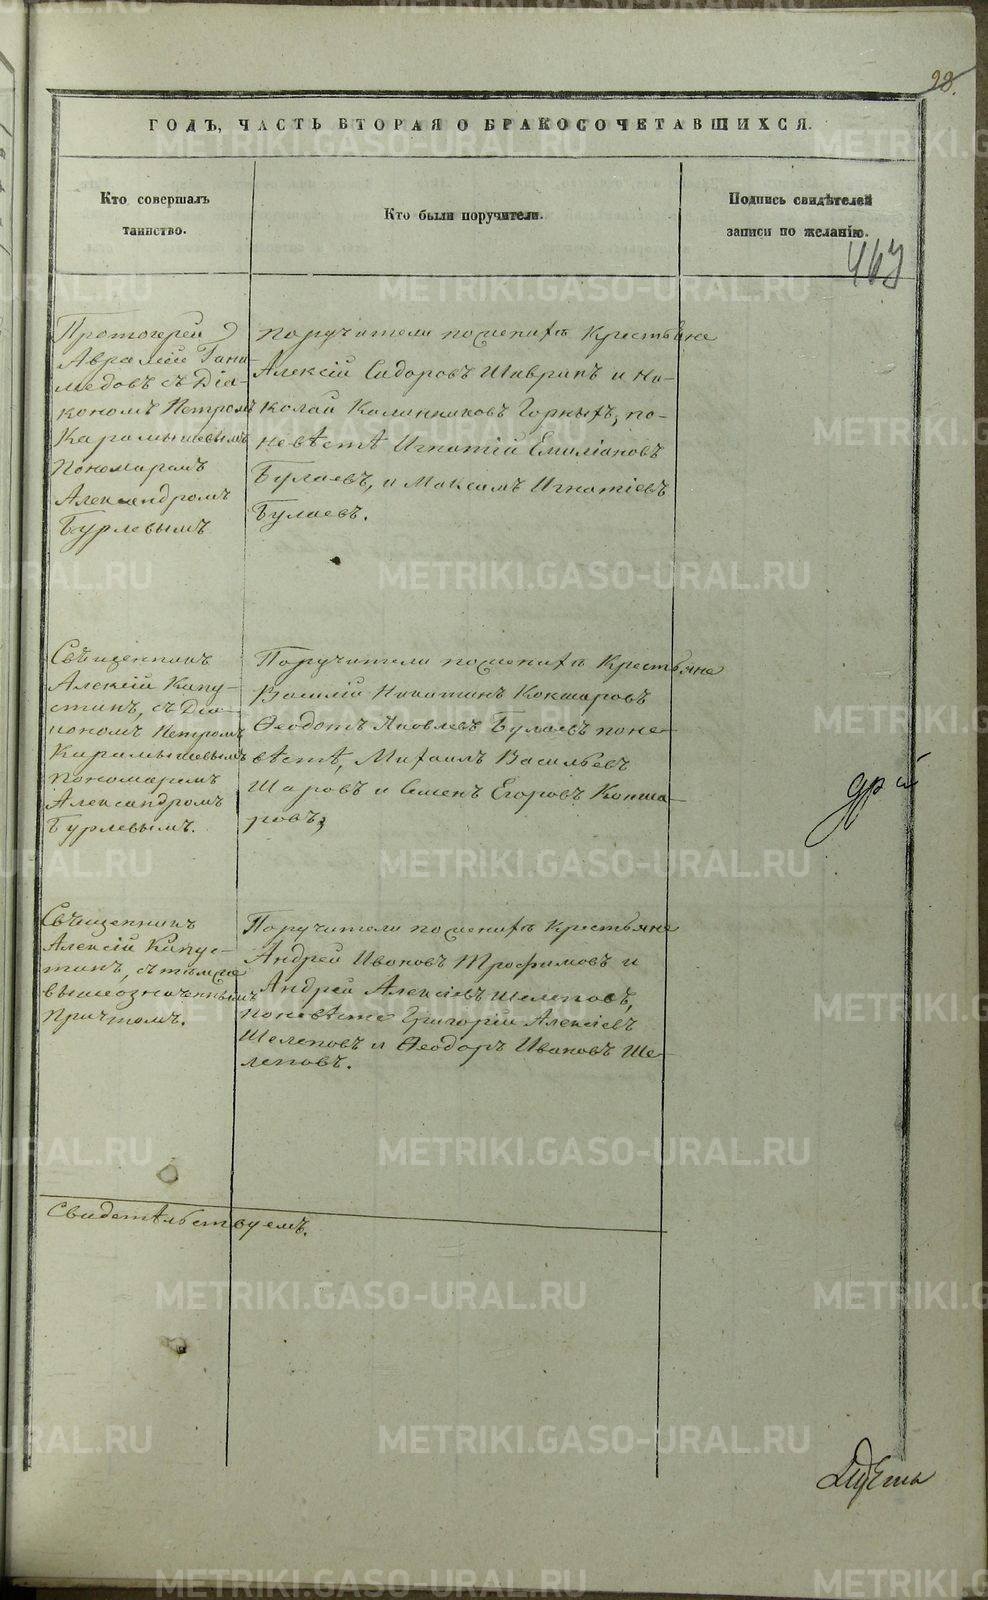 28.
ГОДЪ, ЧАСТЬ ВТОРАЯ О БРАКОСОЧЕТАВШИХСЯ.
Кто совершалъ
таинство.
Кто были поручители.
Подпись свидѣтелей
записи по желанію.
Протоіерей
Аврамій Гани-
медовъ съ Діа-
кономъ Петромъ
Карамышевымъ
Пономаремъ
Александромъ
Бурлевымъ
Поручители по женихѣ Крестьяне
Алексій Сидоровъ Шавринъ и Ни-
колай Калинниковъ Горныхъ, по-
невѣстѣ Игнатій Емиліановъ
Булаевъ, и Максимъ Игнатіевъ
Булаевъ.
Священникъ
Алексій Капу-
стинъ, съ Діа-
кономъ Петромъ
Карамышевымъ
Пономаремъ
Александромъ
Бурлевымъ.
Поручители по женихѣ Крестьяне
Василій Никитинъ Кокшаровъ
Ѳеодотъ Яковлевъ Булаевъ поне-
вѣстѣ, Михаилъ Васильевъ
Шаровъ и Семенъ Егоровъ Кокша-
ровъ,
Священникъ
Алексій Капус-
тинъ, съ тѣмже
вышеозначеннымъ
Причтомъ.
Поручители по женихѣ Крестьяне
Андрей Ивановъ Трофимовъ и
Андрей Алексіевъ Шелеповъ,
поневѣсте Григорій Алексіевъ
Шелеповъ и Ѳеодоръ Ивановъ Ше-
леповъ.
Свидетѣльствуемъ.
METRIKI.GASO-URAL.RU